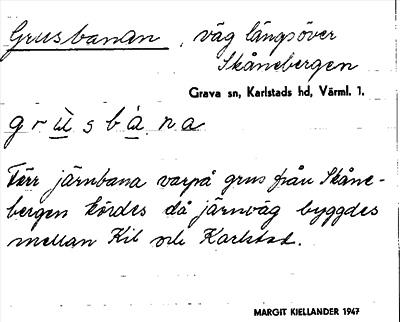 Grusbanan, väg längsöver
Skånebergen
Grava sn, Karlstads hd, Värml. 1.
grùsbàna
Förr järnbana varpå grus från Skåne-
bergen kördes då järnväg byggdes
mellan Kil och Karlstad.
MARGIT KJELLANDER 1947